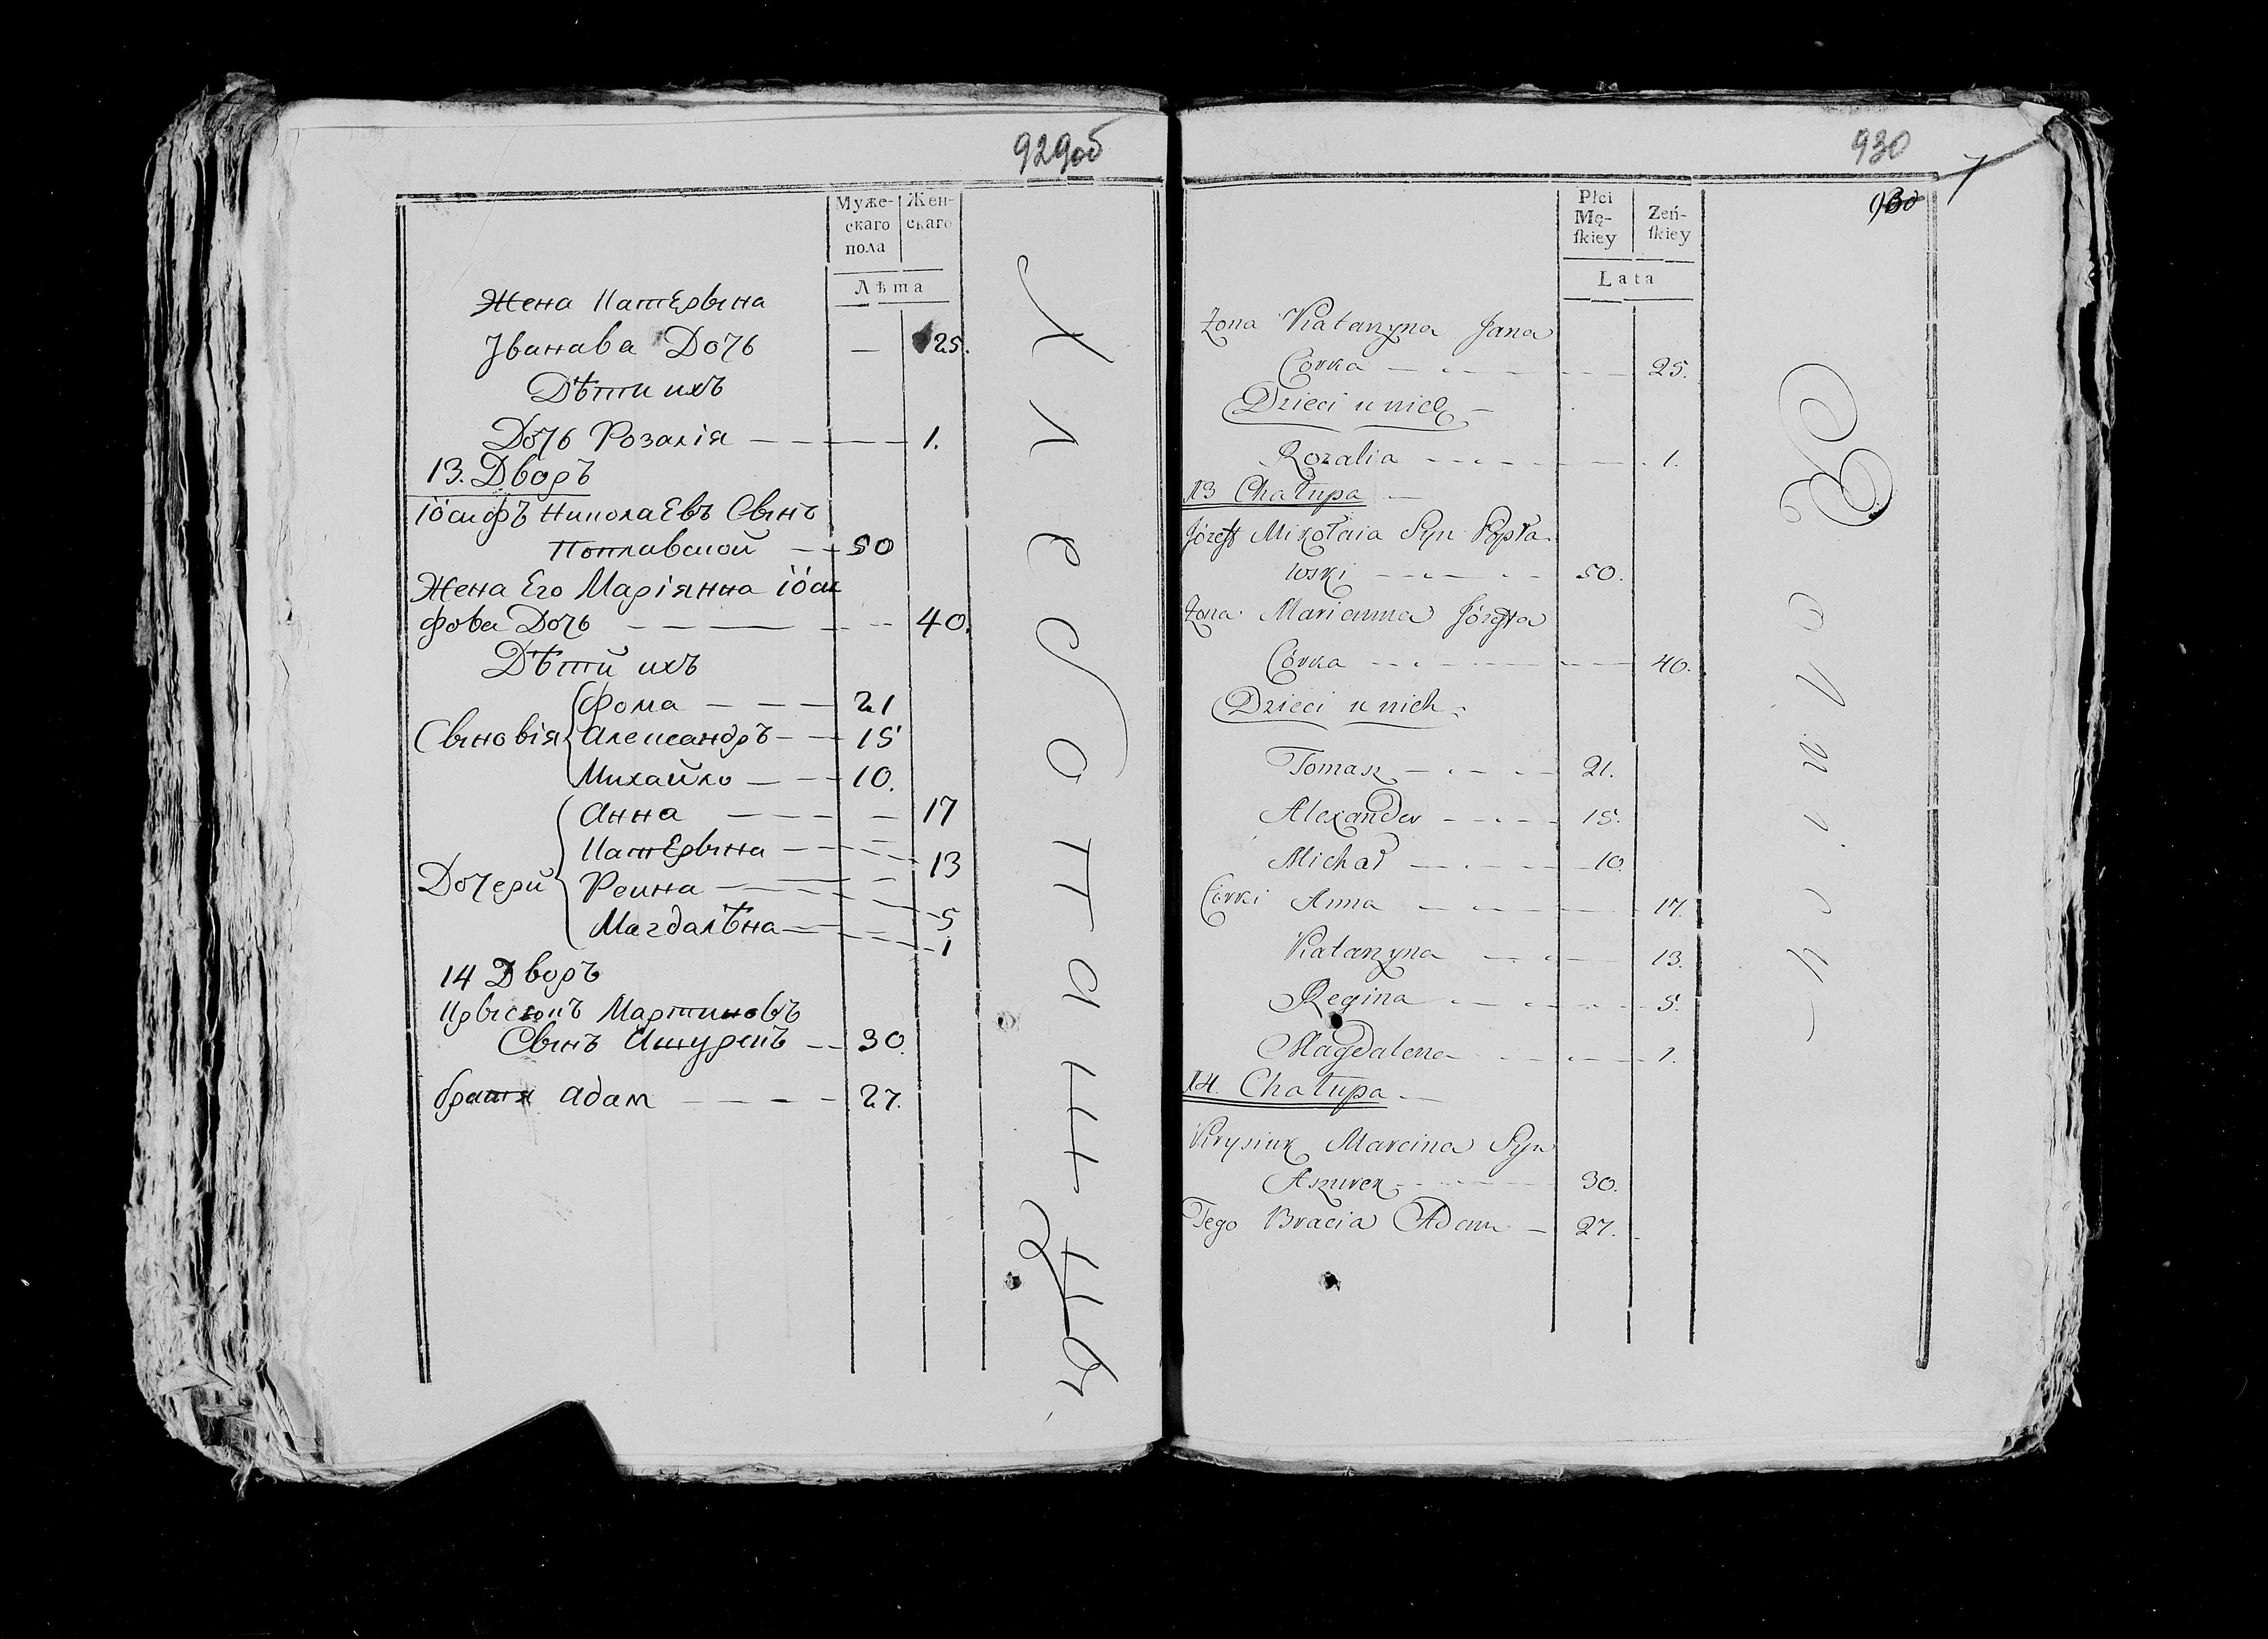 929об
Муже-
скаго
пола
Жен-
скаго
Лѣта
Жена Катерына
Јванава Дочь — 25.
Дѣти ихъ
Дочь Розалія — — — — 1.
13. Дворъ
Іосифъ Николаевъ Сынъ
Поплавской — — 50
Жена Его Маріянна Іоси
фова Дочь — — — — 40.
Дѣти ихъ
Сыновія
Фома — — — 21
Александръ — — 15
Михайло — — 10.
Дочери
Анна — — — — 17
Катерына — — — 13
Реина — — — 5
Магдалѣна — — — 1
14 Дворъ
Мартиновъ
Сынъ — — 30.
братя Адам — — — — 27.
930
Płci
Mę-
skiey
Zeń-
skiey
Lata
Zona Katarzyna Jana
Córka — — — 25.
Dzieci u nich —
Rozalia — — — 1.
13 Chałupa —
Józeff Mikołaia Syn Popła
wski — — — 50.
Zona Marianna Józefa
Córka — — — 40.
Dzieci u nich.
Tomasz — — — 21.
Alexander — — — 15.
Michał — — — 10.
Córki Anna — — — 17.
Katarzyna — — — 13.
Regina — — — 5.
Magdalena — — — 1.
14. Chałupa —
Krysiuk Marcina Syn
Aszurek — — — 30.
Tego Bracia Adam — 27.